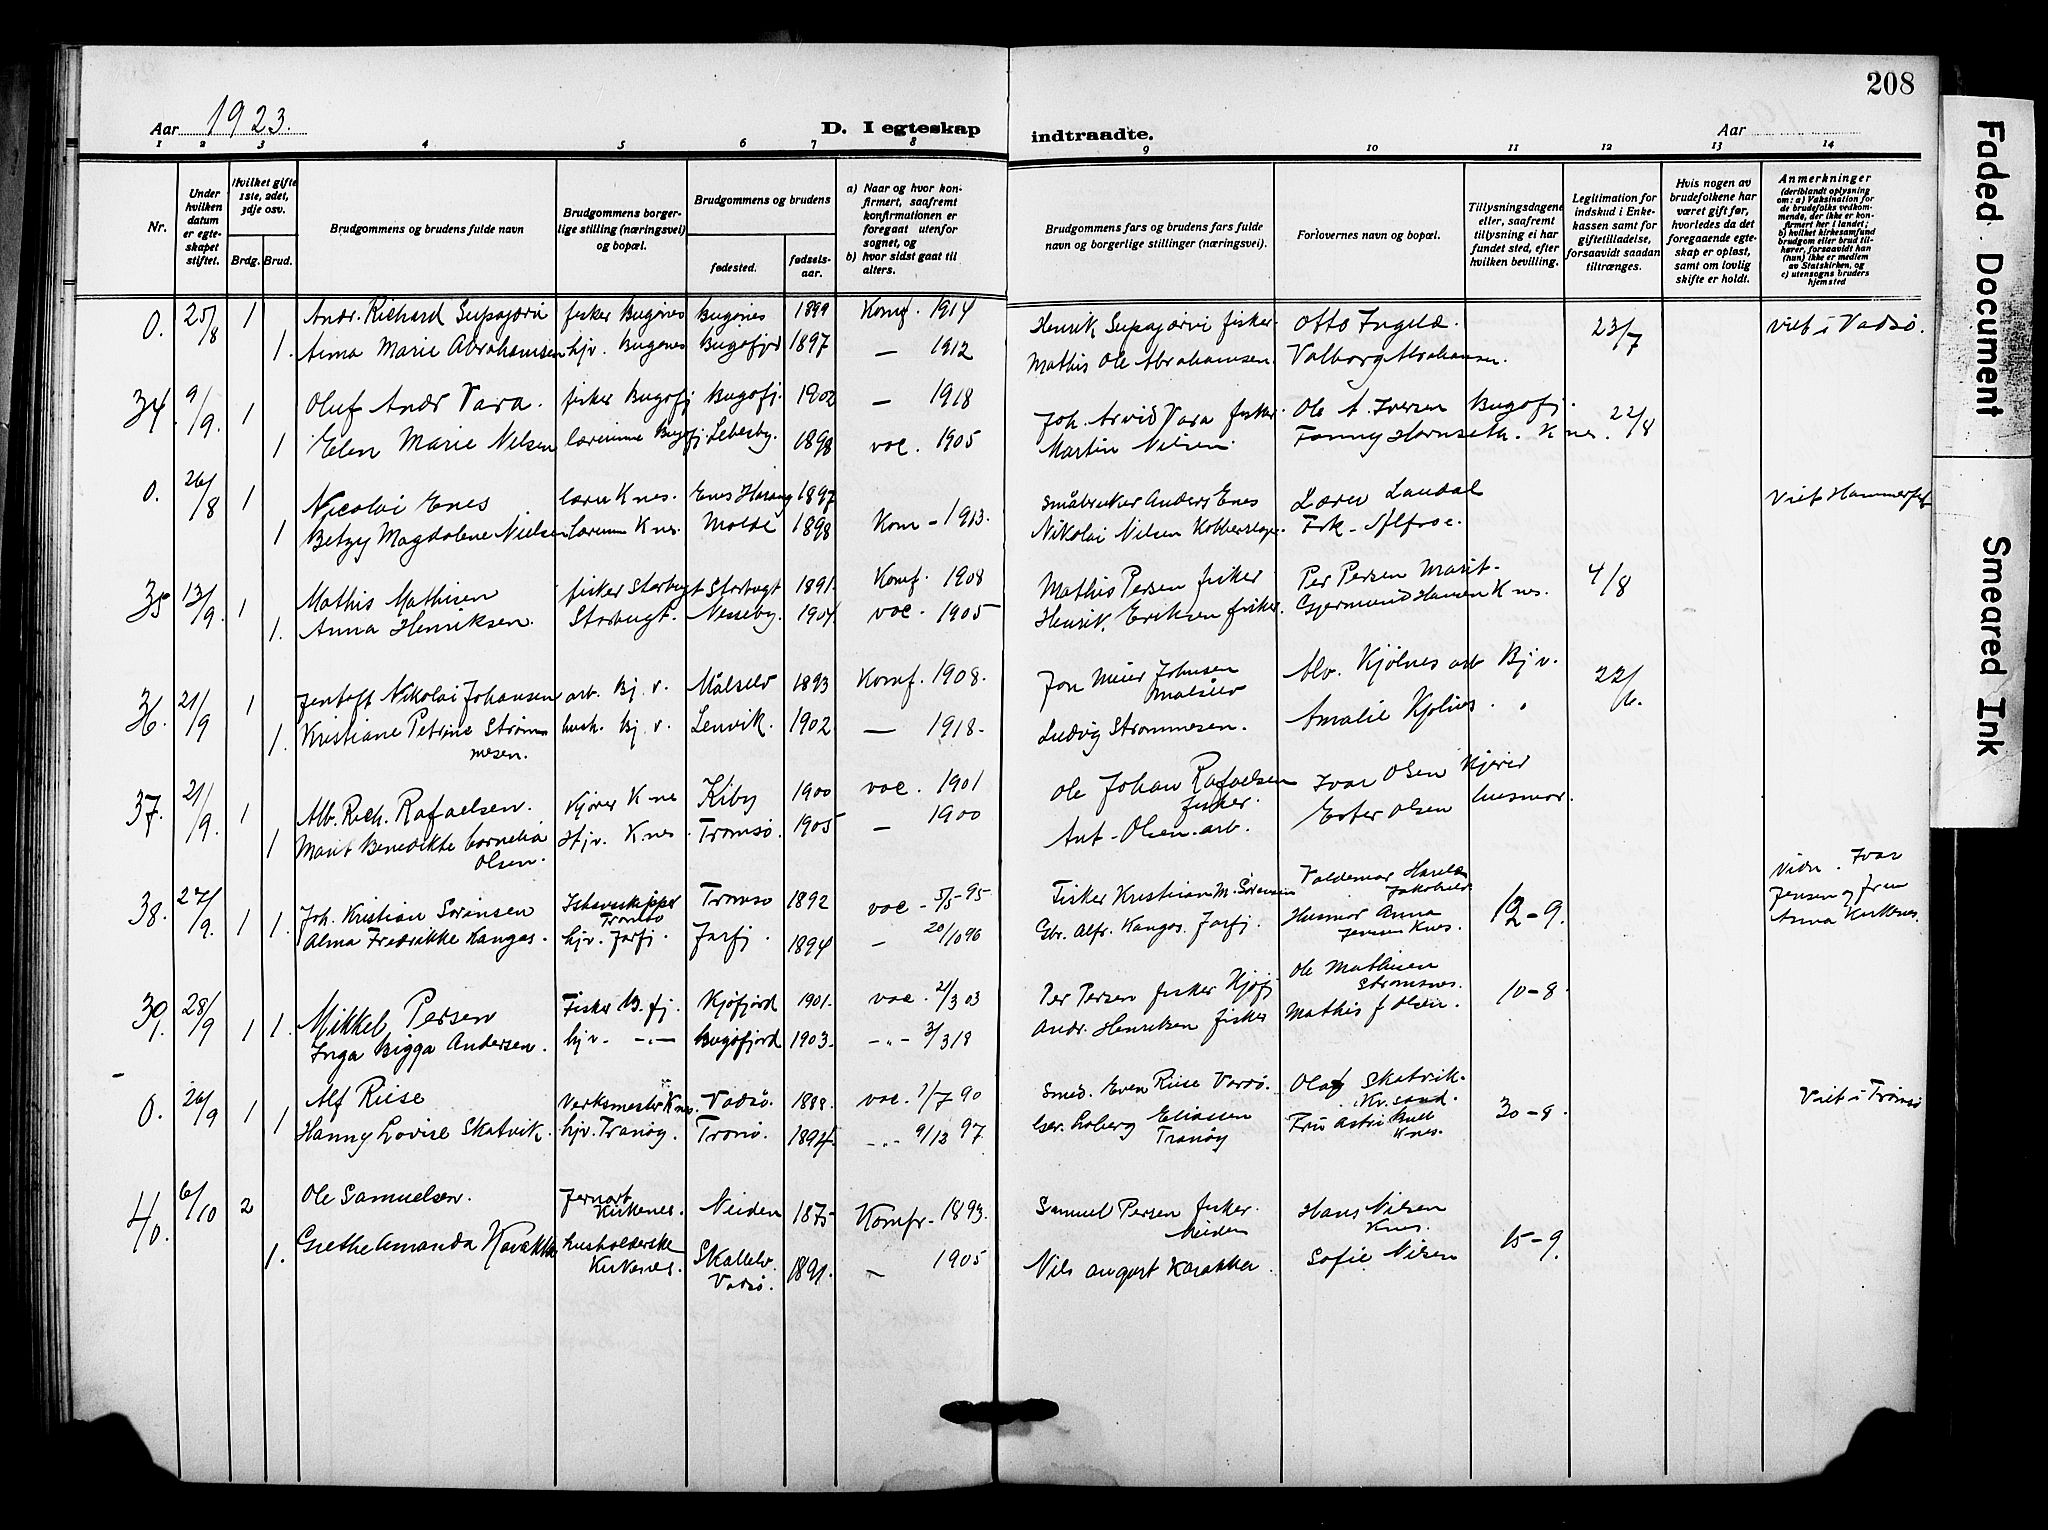 208
Aar 1923.
D. I egteskap indtraadte.
Aar
1 2 3 4 5 6 7 8 9 10 11 12 13 14
Nr.
Under hvilken datum er egteskapet stiftet.
Hvilket gifte 1ste, 2det, 3dje osv.
Brdg. Brud.
Brudgommens og brudens fulde navn
Brudgommens borgerlige stilling (næringsvei) og bopæl.
Brudgommens og brudens
fødested.
fødselsaar.
a) Naar og hvor konfirmert, saafremt konfirmationen er foregaat utenfor sognet, og
b) hvor sidst gaat til alters.
Brudgommens fars og brudens fars fulde navn og borgerlige stillinger (næringsvei).
Forlovernes navn og bopæl.
Tillysningsdagene eller, saafremt tillysning ei har fundet sted, efter hvilken bevilling.
Legitimation for indskud i Enkekassen samt for giftetilladelse, forsaavidt saadan tiltrænges.
Hvis nogen av brudefolkene har været gift før, hvorledes da det foregaaende egteskap er opløst, samt om lovlig skifte er holdt.
Anmerkninger
(deriblandt oplysning om: a) Vaksination for de brudefolks vedkommende, der ikke er konfirmert her i landet; b) hvilket kirkesamfund brudgom eller brud tilhører, forsaavidt han (hun) ikke er medlem av Statskirken, og c) utensogns bruders hjemsted
0. 25/8 1 Andr. Richard Supajærvi fisker Bugønes Bugønes 1899 Komf. 1914 Henrik Supajærvi fisker. Otto Ingelæ. 23/7 Viet i Vadsø.
1. Anna Marie Abrahamsen hjv. Bugønes Bugøfjord 1897 — 1912 Mathis Ole Abrahamsen Valborg Abrahamsen.
34. 9/9. 1 Oluf Andr Vara. fisker Bugøfj Bugøfj. 1902 — 1918 Joh. Arvid Vara fisker. Ole A. Iversen Bugøfj. 22/8
1 Elen Marie Nilsen lærerinne Bugøfj Lebesby. 1898 vac. 1905 Martin Nilsen. Fanny Hornseth. Knes.
0. 26/8 1 Nicolai Enes lærer Knes. Enes 1897 Småbruker Anders Enes Lærer Landal Viet Hammerfest
1 Betzy Magdalene Nielsen lærerinne Knes. Molde 1898 Kom – 1913. Nikolai Nilsen Kobberslager. Frk.
35 13/9. 1 Mathis Mathisen fisker Storbugt Storbugt 1891. Komf. 1908 Mathis Persen fisker Per Persen Marit- 4/8
1. Anna Henriksen. Storbugt. Nesseby. 1904 vac. 1905 Henrik Eriksen fisker. Gjermund Hansen Knes.
36. 21/9 1 Jentoft Nikolai Johansen arb. Bj. v. Målselv 1893 Komf. 1908. Jon Meier Johnsen Målselv Alv. Kjølnes arb Bj v. 22/6.
1. Kristiane Petrine Strømmesen. hush. Bj. v. Lenvik. 1902 — 1918. Ludvig Strømmesen. Amalie Kjølnes.
37. 21/9. 1 Alb. Rich. Rafaelsen. Kjører Knes Kiby 1900 vac. 1901 Ole Johan Rafaelsen fisker. Ivar Olsen Kjører
1 Marit Benedikte Cornelia Olsen. Hjv. Knes. Tromsø. 1905 — 1900 Ant. Olsen. arb. Ester Olsen husmor.
38. 27/9. 1 1. Joh. Kristian Sörensen Ishavsskipper Tromsø Tromsø 1892 vac – 5/5–95 Fisker Kristian M. Sörensen Valdemar 12–9. Vidn. Ivar Jensen og frue Anna Kirkenes.
Alma Fredrikke Kangas. hjv. Jarfj. Jarfj. 1894 — 20/10 96 Gbr. Alfr. Kangas. Jarfj. Husmor Anna Jensen Knes.
39. 28/9 1 1. Mikkel Persen Fisker B. fj. Kjøfjord 1901. vac. 21/3 03 Per Persen fisker Kjøfj Ole Mathisen Strømsnes. 10–8.
Inga Bigga Andersen. hjv. –"– Bugøfjord 1903. –"– 3/3 18 Andr. Henriksen fisker Mathis J Olsen.
0. 26/9 1 1 Alf Riise Verksmester Knes. Vadsø. 1888. vac. 1/7 90 Smed. Even Riise Vardø. Olaf Skatvik. Kr.sand. 30–8. Viet i Tromsø
Hanny Lovise Skatvik. hjv. Tranøy. Tranø. 1894. –"– 9/12 97. Eliassen Tranöy Fru Astri Bull Knes.
40. 6/10 2 Ole Samuelsen. Jernarb Kirkenes. Neiden 1875 Komfr. 1893. Samuel Persen fisker. Neiden Hans Nilsen Knes. 15–9.
1. Grethe Amanda Kavakka husholderske Kirkenes. Skallelv Vadsø. 1891. — 1905 Nils August Kavakka. Sofie Nilsen
Faded Document
Smeared Ink